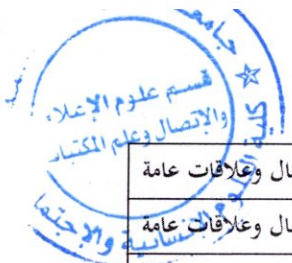 جامعـ
قسم علوم الإعلا
والإتصال وعلم المكتبا
كلية العلوم الإنسانية والإجتما
ال وعلاقات عامة
ال وعلاقات عامة